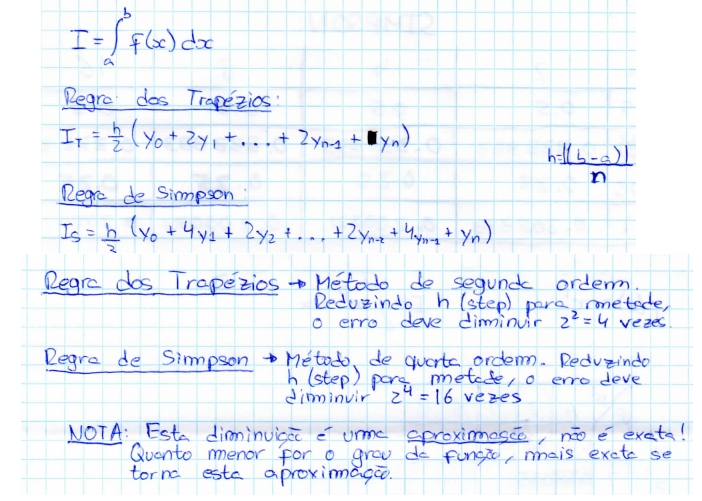 I = ∫ₐᵇ f(x) dx
Regra dos Trapézios:
I_T = h/2 (y₀ + 2y₁ + ... + 2yₙ₋₁ + yₙ)
h = |(b-a)|/n
Regra de Simpson:
I_S = h/3 (y₀ + 4y₁ + 2y₂ + ... + 2yₙ₋₂ + 4yₙ₋₁ + yₙ)
Regra dos Trapézios → Método de segunda ordem.
Reduzindo h (step) para metade,
o erro deve diminuir 2² = 4 vezes.
Regra de Simpson → Método de quarta ordem. Reduzindo
h (step) para metade, o erro deve
diminuir 2⁴ = 16 vezes
NOTA: Esta diminuição é uma aproximação, não é exata!
Quanto menor for o grau da função, mais exata se
torna esta aproximação.